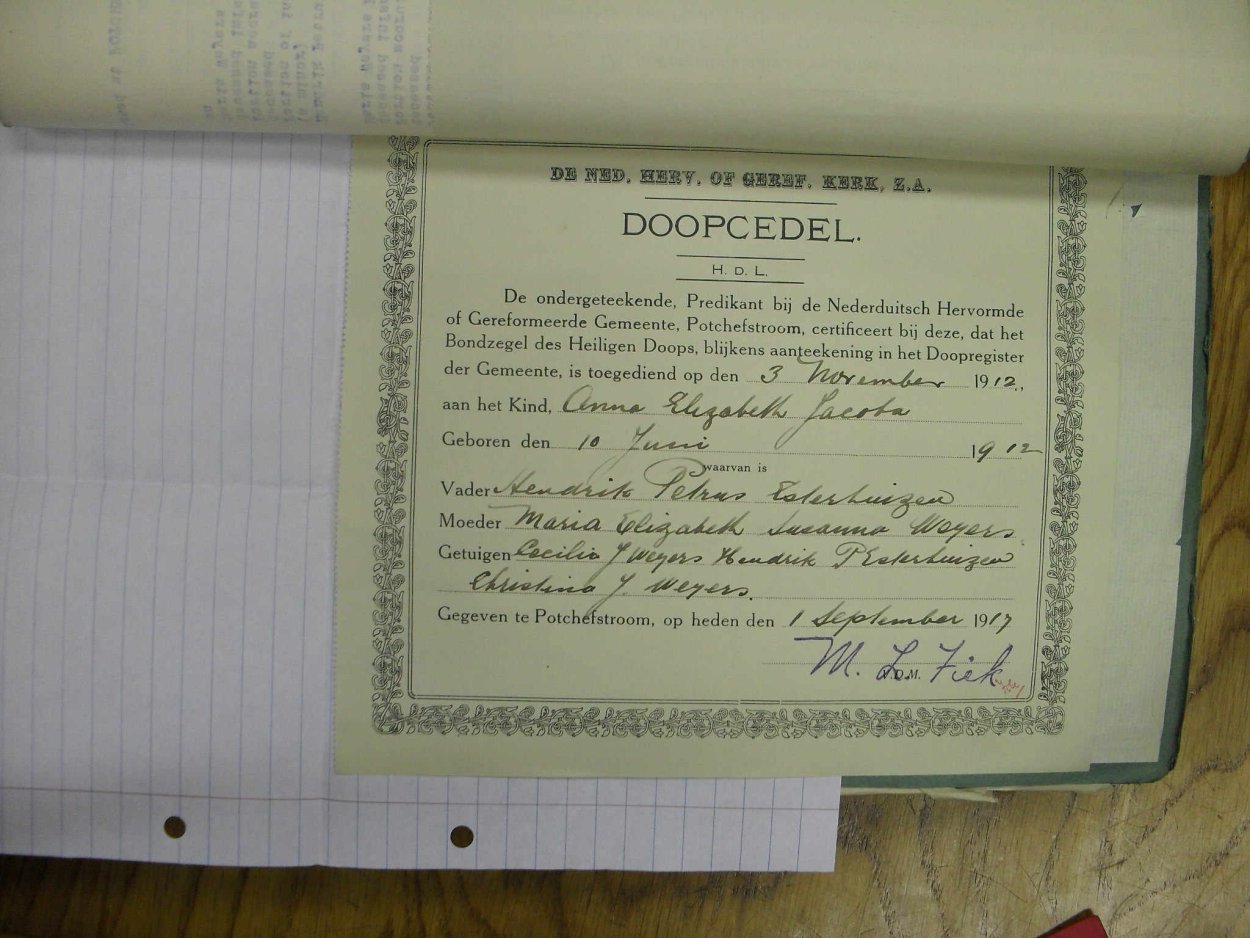 DE NED. HERV. OF GEREF. KERK, Z.A.
DOOPCEDEL.
H. D. L.
De ondergeteekende, Predikant bij de Nederduitsch Hervormde
of Gereformeerde Gemeente, Potchefstroom, certificeert bij deze, dat het
Bondzegel des Heiligen Doops, blijkens aanteekening in het Doopregister
der Gemeente, is toegediend op den 3 November 1912,
aan het Kind, Anna Elizabeth Jacoba
Geboren den 10 Juni 1912
waarvan is
Vader Hendrik Petrus Esterhuizen
Moeder Maria Elizabeth Susanna Weyers
Getuigen Cecilia J Weyers Hendrik P Esterhuizen
Christina J. Weyers.
Gegeven te Potchefstroom, op heden den 1 September 1917
M. L. Fick
V.D.M.